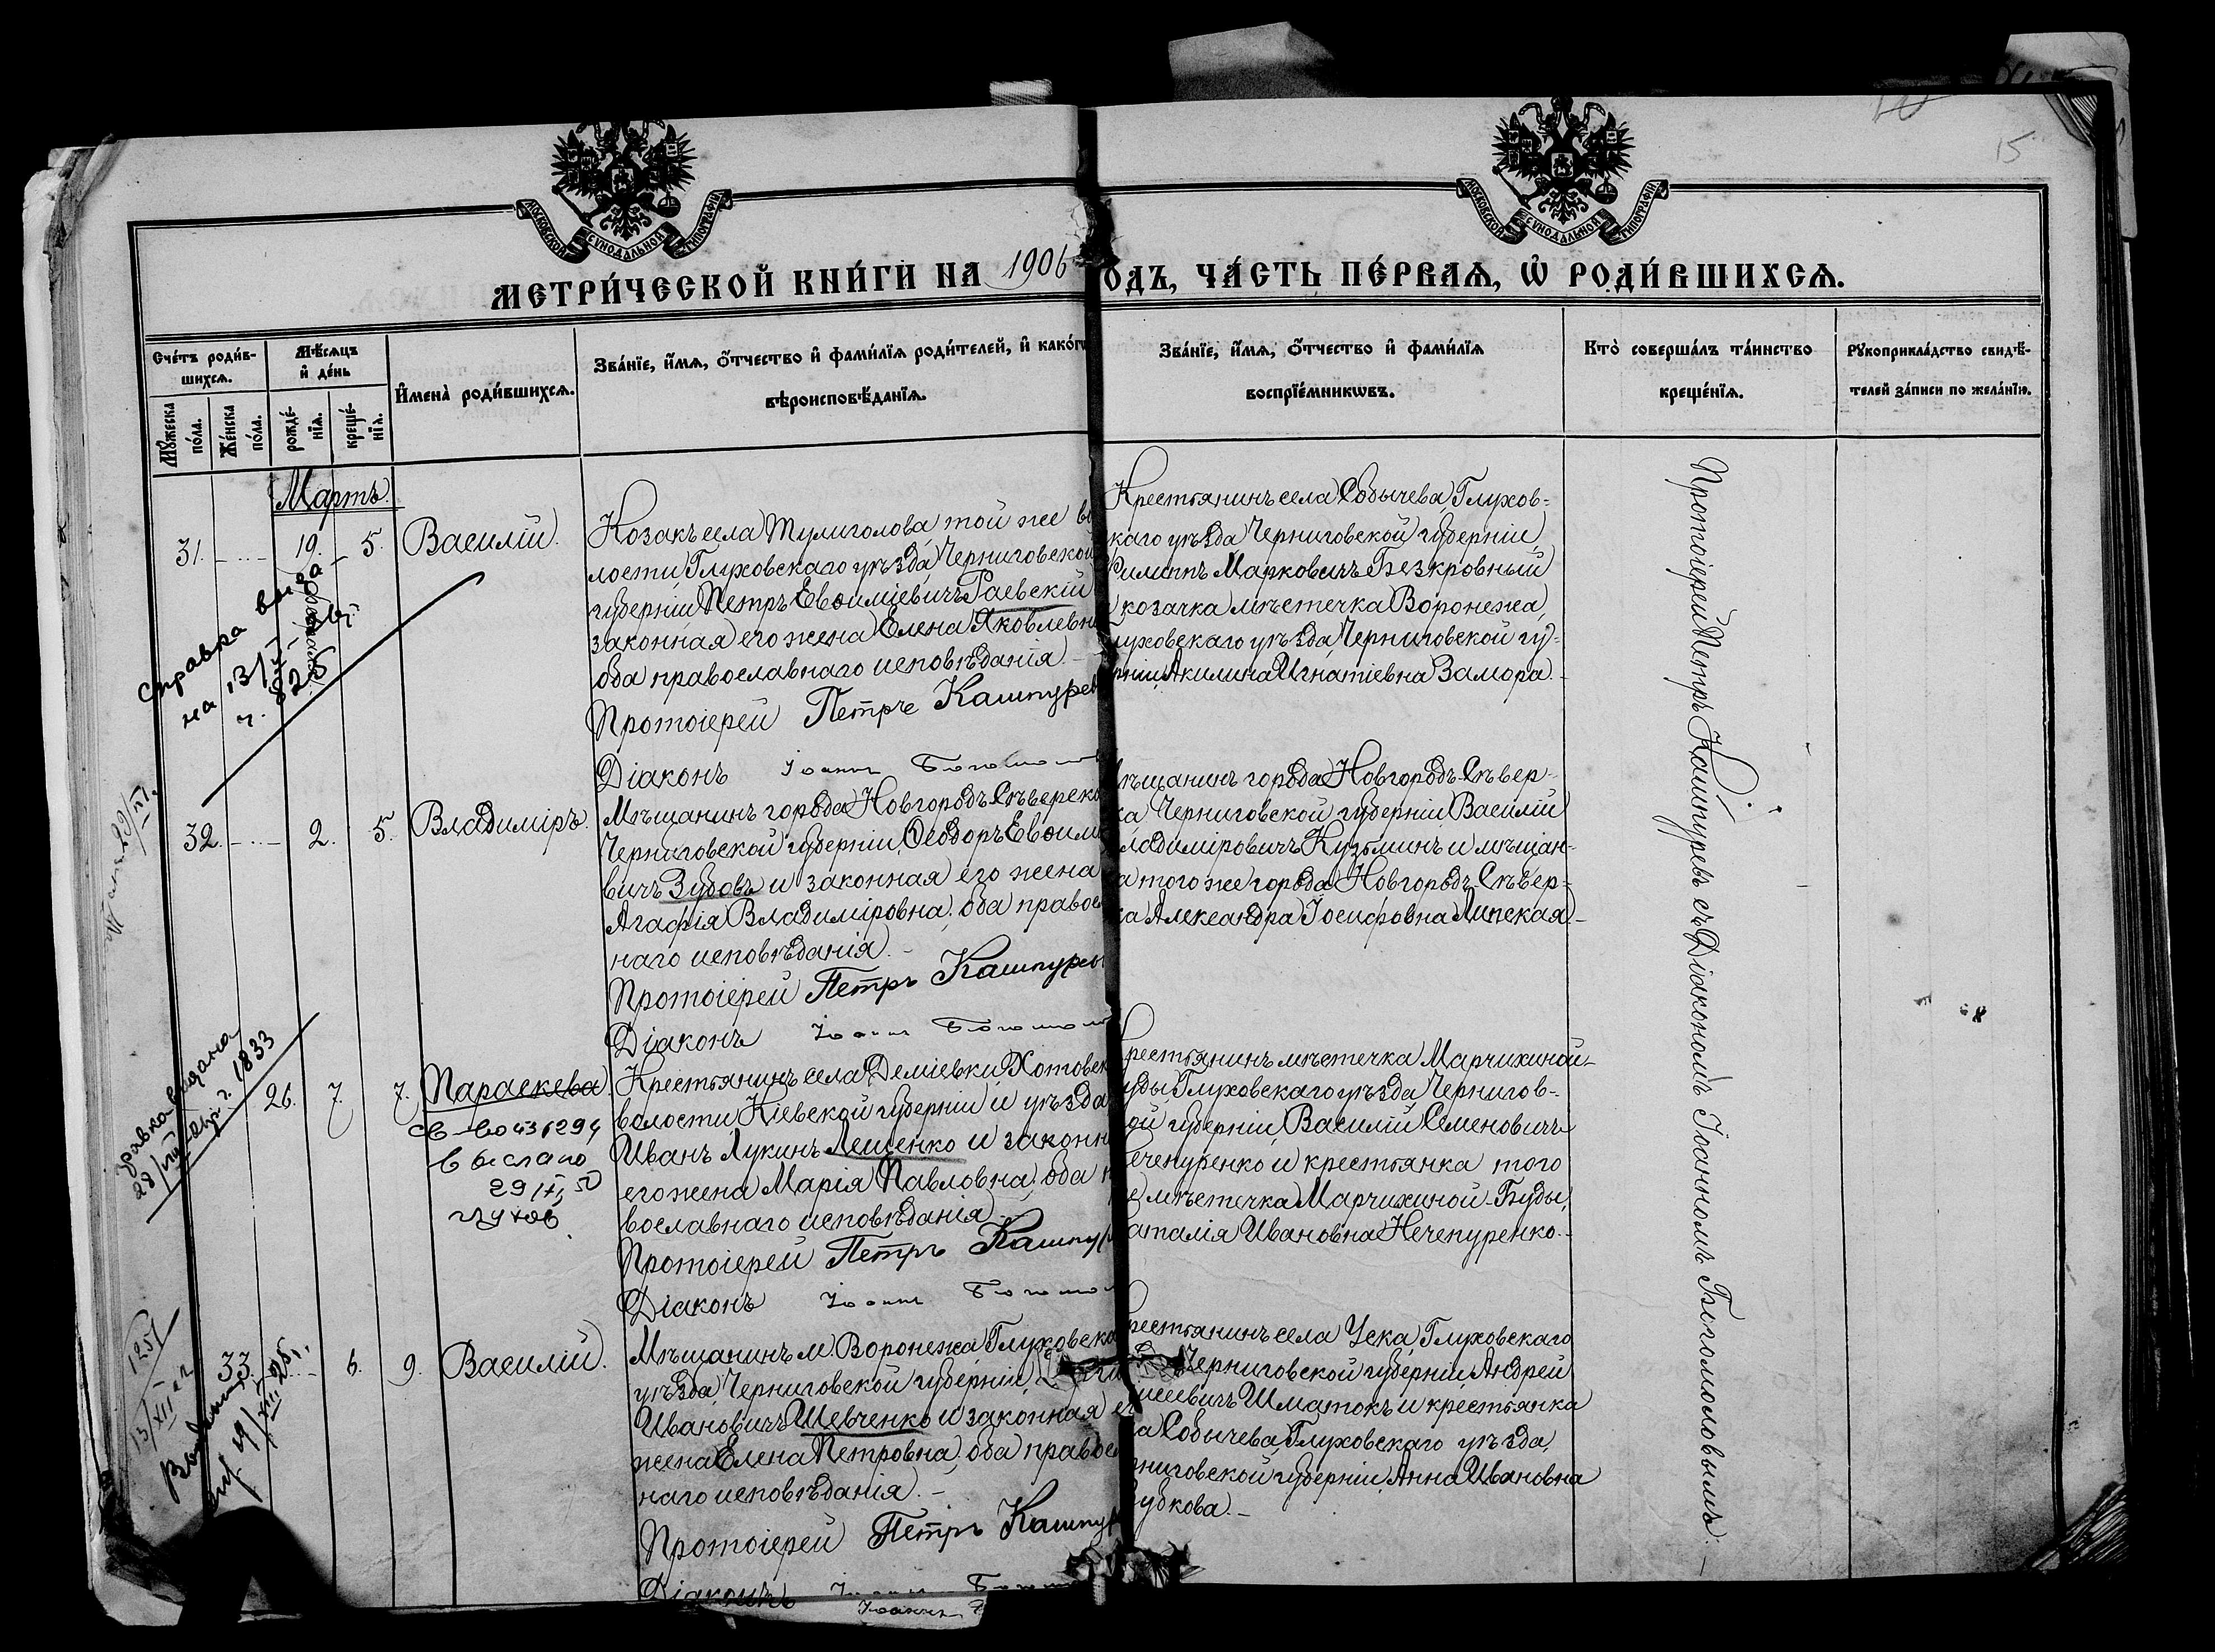 15
МОСКОВСКОЙ СѴНОДАЛЬНОЙ ТИПОГРАФІИ
МОСКОВСКОЙ СѴНОДАЛЬНОЙ ТИПОГРАФІИ
МЕТРИ́ЧЕСКОЙ КНИ́ГИ НА 1906
ОДЪ, ЧА́СТЬ ПЕ́РВАѦ, Ѡ҆ РОДИ́ВШИХСѦ.
Сче́тъ роди́в-
шихсѧ.
Мꙋ́жеска по́ла.
Же́нска по́ла.
Мѣ́сѧцъ
и҆ де́нь
рожде́-
нїѧ.
креще́-
нїѧ.
И҆мена̀ роди́вшихсѧ.
Зва́нїе, и҆́мѧ, ѻ҆́тчество и҆ фами́лїѧ роди́телей, и҆ како́гѡ
вѣроисповѣ́данїѧ.
Зва́нїе, и҆́мѧ, ѻ҆́тчество и҆ фами́лїѧ
воспрїе́мникѡвъ.
Кто̀ соверша́лъ та́инство
креще́нїѧ.
Рꙋкоприкла́дство свидѣ́-
телей за́писи по жела́нїю.
Мартъ.
31. 19. 5. Василій.
февраля
Справка выда
на 13/
ч. 825
Козакъ села Тулиголова, той же во
лости Глуховскаго уѣзда, Черниговской
губерніи Петръ Евѳиміевичъ Раевскій
законная его жена Елена Яковлевна
оба православнаго исповѣданія. -
Протоіерей Петръ Кашпурев
Діаконъ Іоаннъ Богомол
Крестьянинъ села Собычева, Глухов=
скаго уѣзда, Черниговской губерніи,
Филиппъ Марковичъ Безкровный
козачка мѣстечка Воронежа,
луховскаго уѣзда, Черниговской гу=
рніи, Акилина Игнатіевна Замора. -
32. 2. 5. Владиміръ.
Мѣщанинъ города Новгородъ-Сѣверска
Черниговской губерніи, Ѳеодоръ Евѳими
вичъ Зубовъ и законная его жена
Агафія Владиміровна, оба правос
наго исповѣданія. -
Протоіерей Петръ Кашпурев
Діаконъ Іоаннъ Богомол
мѣщанинъ города Новгородъ-Сѣвер-
ка Черниговской губерніи Василій
ладиміровичъ Кузьминъ и мѣщан-
а того же города Новгородъ-Сѣвер=
ка Александра Іосифовна Липская. -
26. 7. 7. Параскева.
выслано
29/XI 50
Глухов
28/VII 1833
Крестьянинъ села Деміевки, Хотовск
волости Кіевской губерніи и уѣзда
Иванъ Лукинъ Лещенко и законн
его жена Марія Павловна, оба п
вославнаго исповѣданія. -
Протоіерей Петръ Кашпур
Діаконъ Іоаннъ Богомол
рестьянинъ мѣстечка Марчихиной-
уды, Глуховскаго уѣзда Чернигов-
ой губерніи, Василій Семеновичъ
ечепуренко и крестьянка того
е мѣстечка Марчихиной-Буды,
аталія Ивановна Нечепуренко. -
33. 6. 9. Василій.
1251
13/XII
Мѣщанинъ м. Воронежа, Глуховска
уѣзда, Черниговской губерніи,
Ивановичъ Шевченко и законная ег
жена Елена Петровна, оба правос
наго исповѣданія. -
Протоіерей Петръ Кашпур
Діаконъ Іоаннъ Богомол
рестьянинъ села Уска, Глуховскаго
Черниговской губерніи Андрей
исеевичъ Шматокъ и крестьянка
а Собычева, Глуховскаго уѣзда,
рниговской губерніи, Анна Ивановна
убкова. -
Протоіерей Петръ Кашпуревъ съ Діакономъ Іоанномъ Богомоловымъ. -